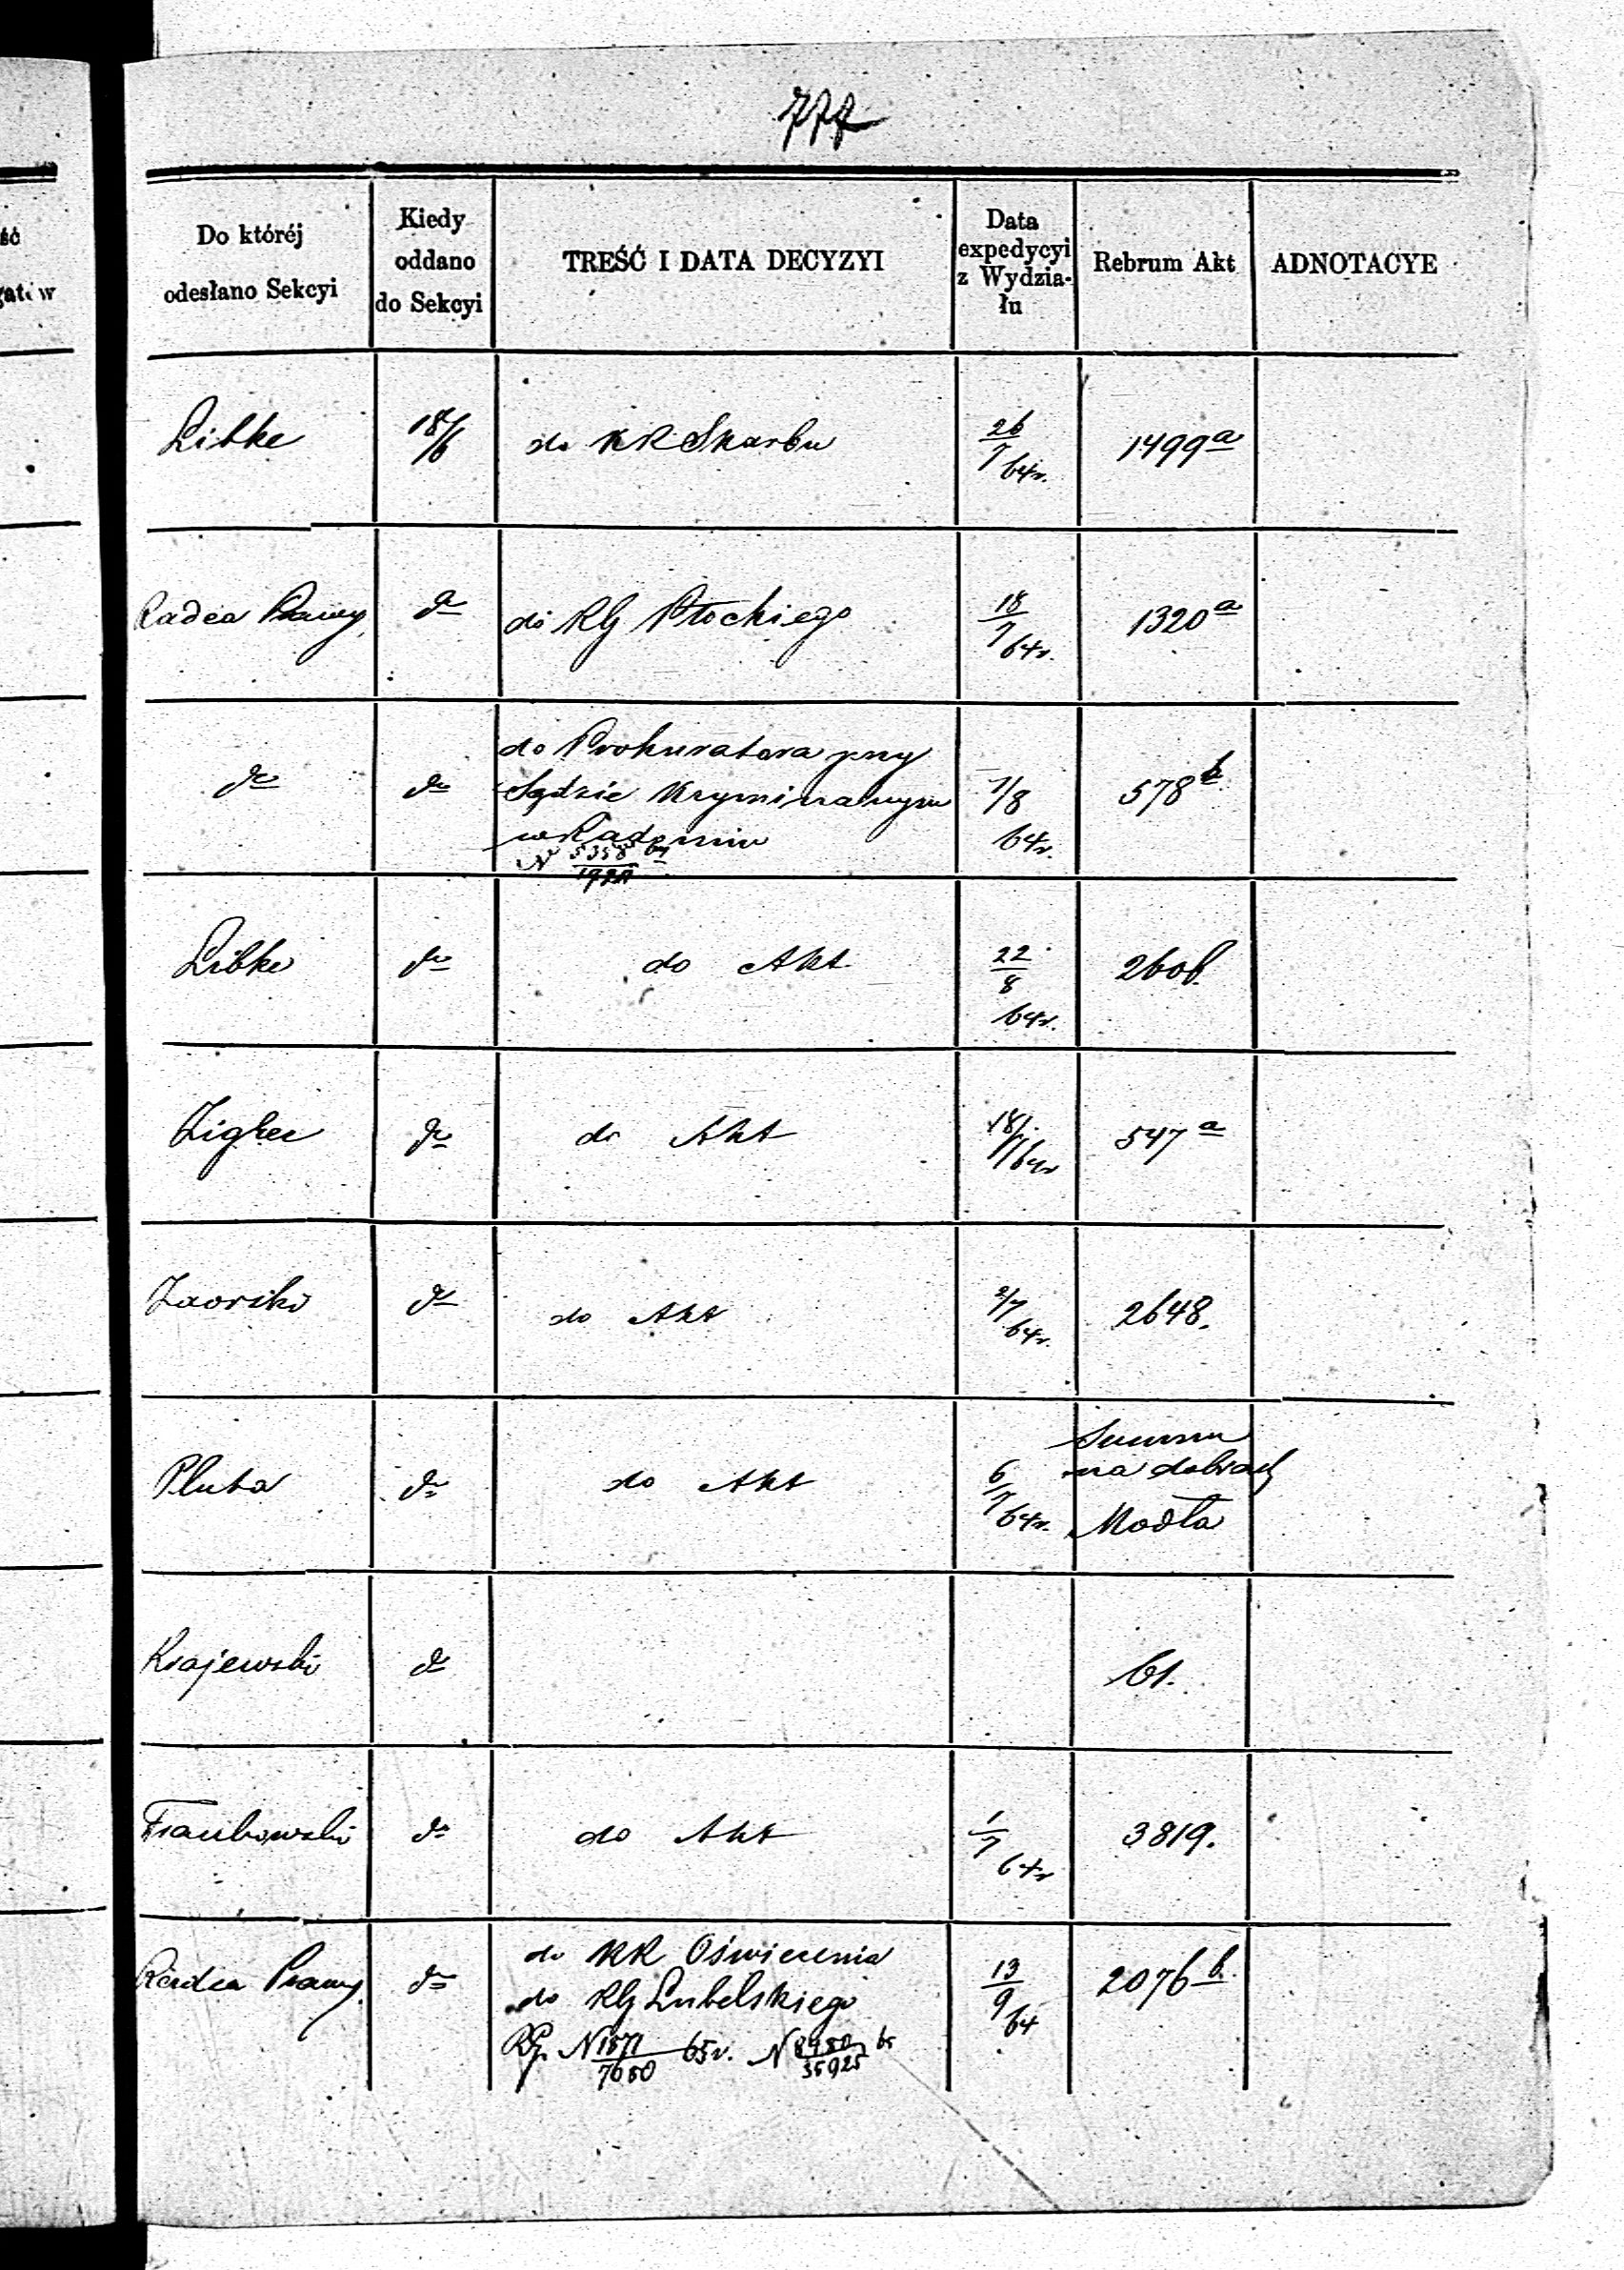 777
ść
gatów
Do któréj
odesłano Sekcyi
Kiedy
oddano
do Sekcyi
TREŚĆ I DATA DECYZYI
Data
expedycyi
z Wydzia-
łu
Rebrum Akt
ADNOTACYE
Libke
18/6
do KR Skarbu
26/7 64r.
1499 a
Radca Prawny
do
do RG Płockiego
18/7 64r.
1320 a
do
do
do Prokuratora przy
Sądzie Kryminalnym
w Radomiu
N
1/8
64r.
578 b
Libke
do
do Akt
22/8
64r.
260 b.
do
do Akt
18/7 64r
547 a
do
do Akt
2/7 64r.
2648.
Pluta
do
do Akt
6/7 64r.
Summa
na dobrach
Modła
Krajewski
do
61.
do
do Akt
1/7 64r
3819.
Radca Prawny
do
do KR Oświecenia
do RG Lubelskiego
RG N 1571/7650 65r. N 8450/35925 65
13/9 64
2076 b.